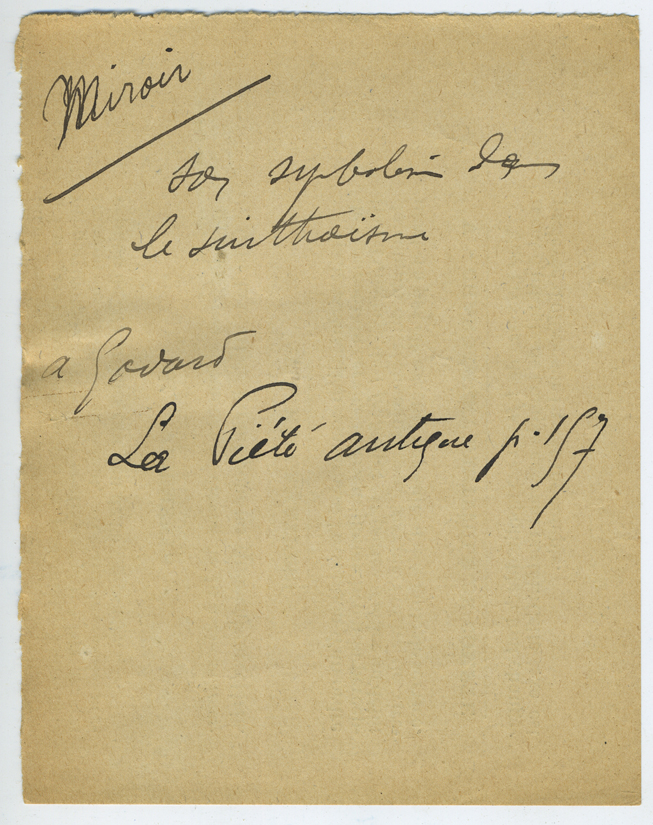 Miroir
son symbolism dans
le sinthoïsme
a Godard
La Piété antique p. 157